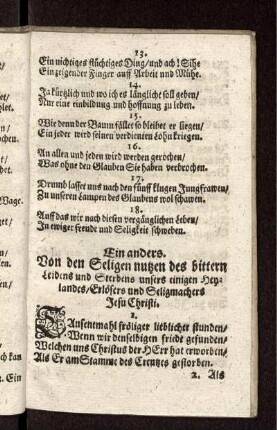 13.
Ein nichtiges flüchtiges Ding/ und ach! Sihe
Ein zeigender Finger auff Arbeit und Mühe.
14.
Ja kürtzlich und wo ich es länglicht soll geben/
Nur eine einbildung und hoffnung zu leben.
15.
Wie denn der Baum fället so bleibet er liegen/
Ein jeder wird seinen verdienten Lohn kriegen.
16.
An allen und jeden wird werden gerochen/
Was ohne den Glauben Sie haben verbrochen.
17.
Drumb lasset uns nach den fünff klugen Jungfrawen/
Zu unseren Lampen des Glaubens wol schawen.
18.
Auff das wir nach diesen vergänglichen Leben/
In ewiger freude und Seligkeit schweben.
Ein anders.
Von den Seligen nutzen des bittern
Leidens und Sterbens unsers einigen Hey-
landes/ Erlösers und Seligmachers
Jesu Christi.
1.
Tausentmahl fröliger lieblicher stunden/
Wenn wir denselbigen friede gefunden/
Welchen uns Christus der HErr hat erworben/
Als Er am Stamme des Creutzes gestorben.
2. Als